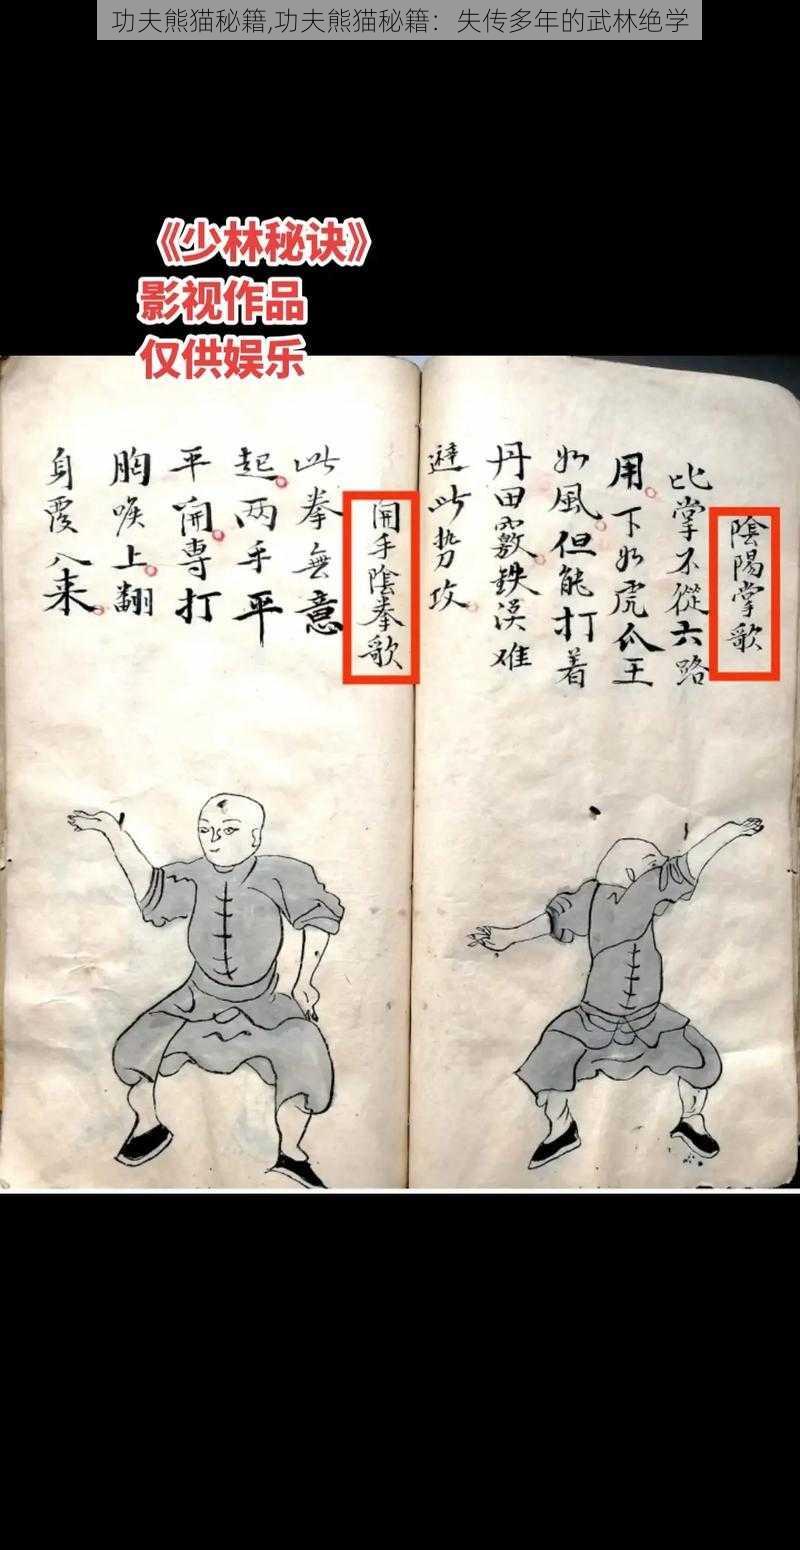 功夫熊猫秘籍,功夫熊猫秘籍：失传多年的武林绝学
《少林秘诀》
影视作品
仅供娱乐
陰陽掌歌
比掌不從六路
用下如虎爪王
如風但能打着
丹田竅鉄漢难
避此势攻
開手陰拳歌
此拳無意
起两手平
平開專打
胸喉上翻
身覆入来